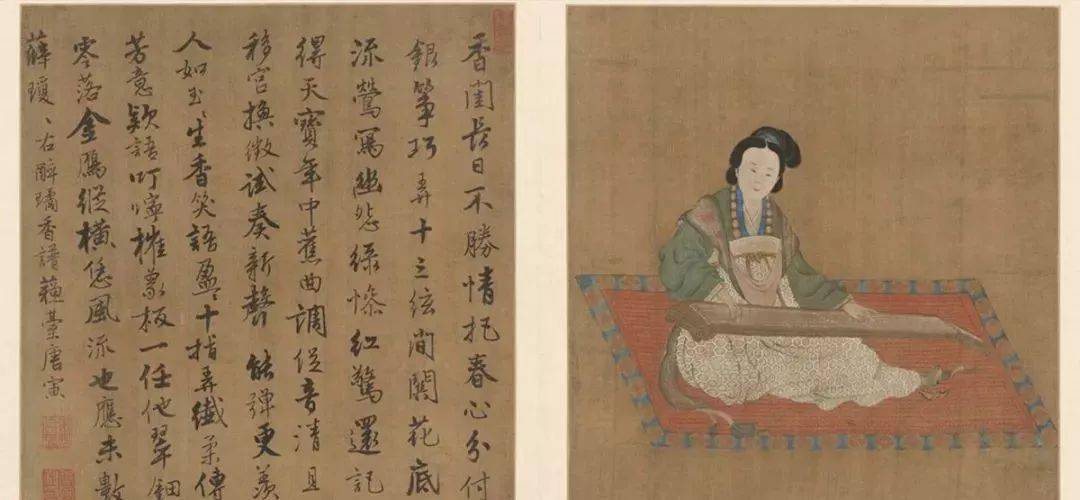 香閨長日不勝情把春心分付
銀箏巧弄十三絃間關花底
流鶯寫幽怨綠慘紅驚還記
得天寶年中舊曲調促音清且
移宮換徵試奏新聲能彈更羨
人如玉〻生香笑語盈〻十指弄纖柔傳
芳意欵語叮嚀摧象板一任他翠鈿
零落金鴈縱橫恁風流也應未數
薛瓊〻右醉香譜蘇臺唐寅